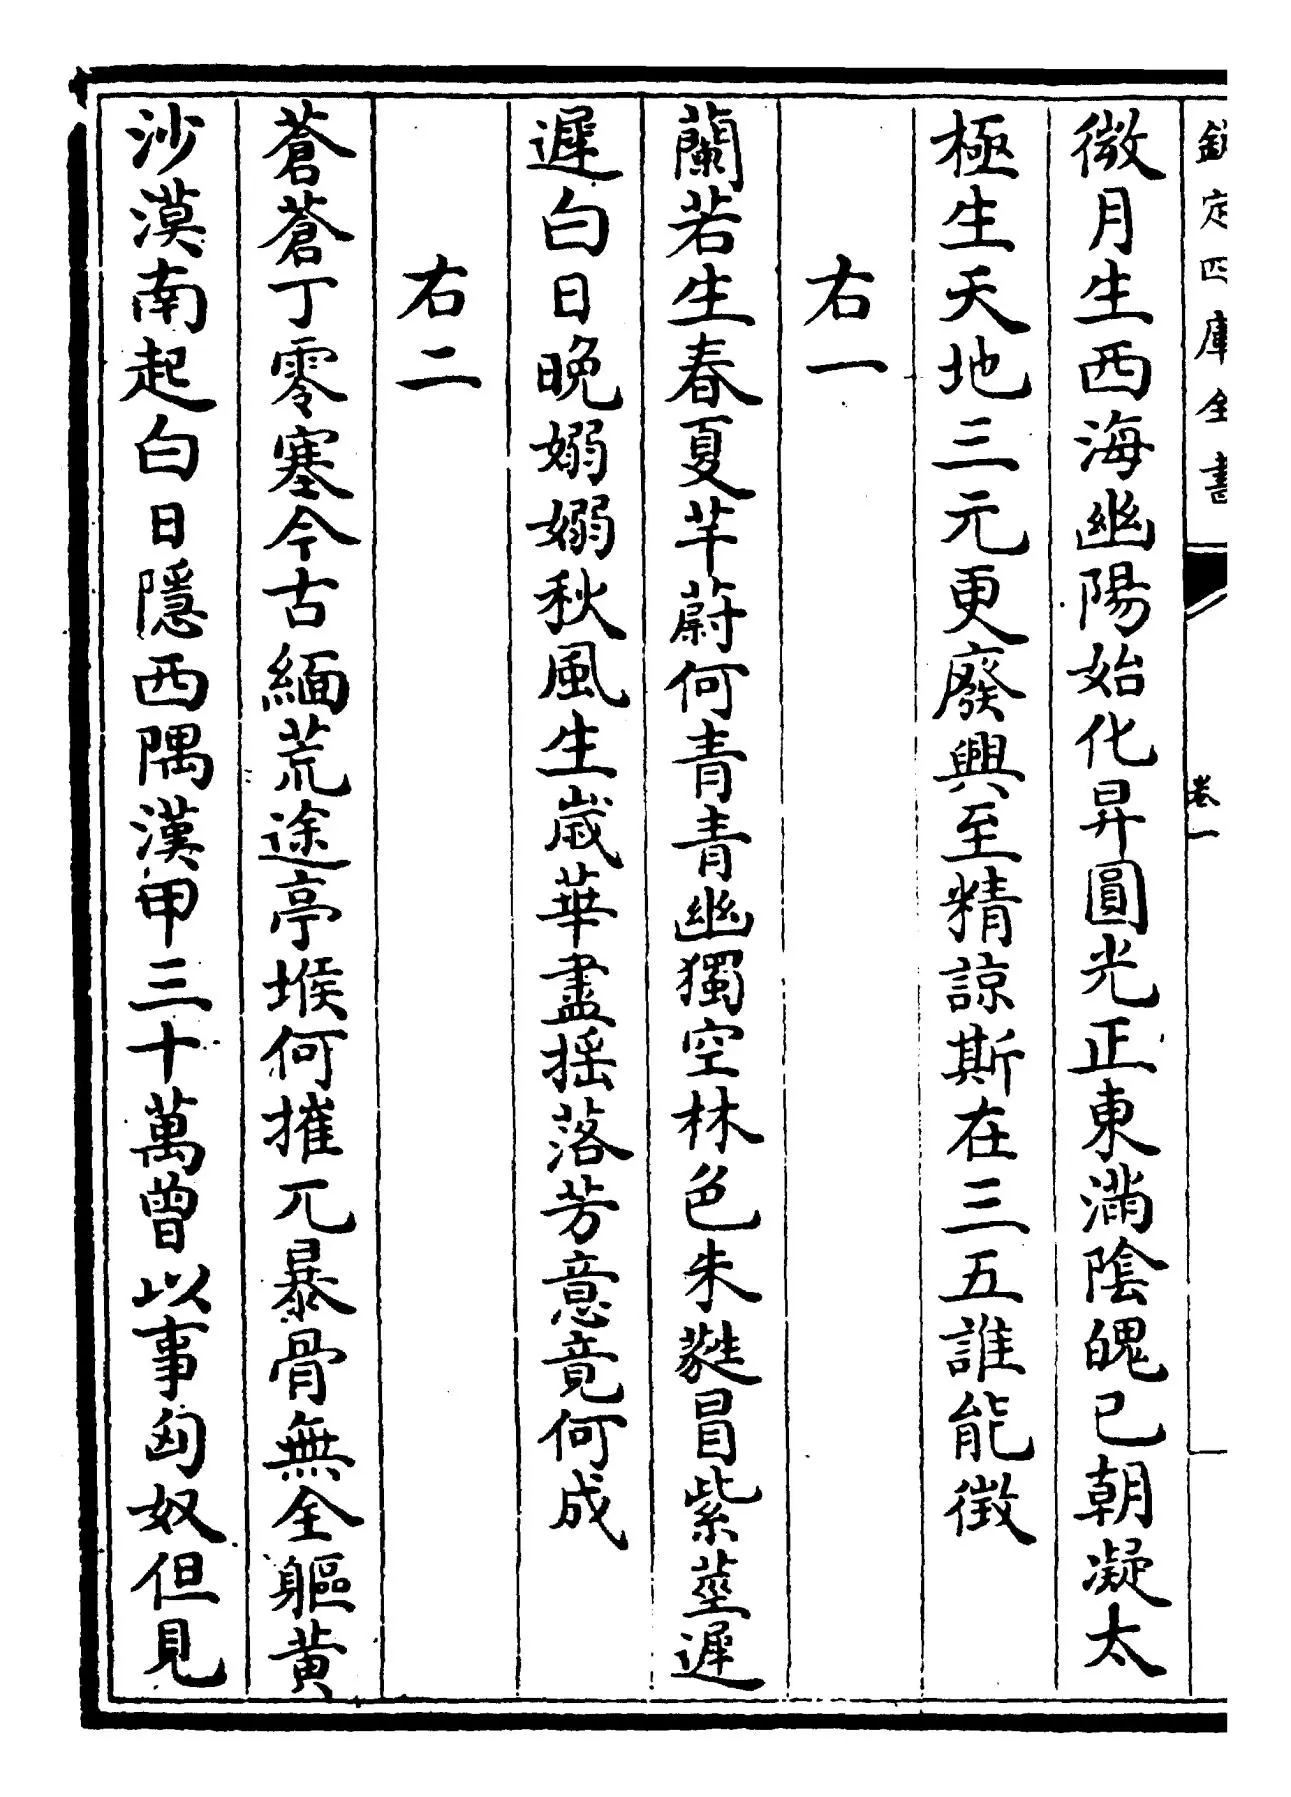 欽定四庫全書
卷一
微月生西海幽陽始化昇圓光正東滿陰魄已朝凝太
極生天地三元更廢興至精諒斯在三五誰能徴
右一
蘭若生春夏芊蔚何青青幽獨空林色朱蕤冒紫莖遲
遲白日晚嫋嫋秋風生歳華盡揺落芳意竟何成
右二
蒼蒼丁零塞今古緬荒途亭堠何摧兀暴骨無全軀黄
沙漠南起白日隱西隅漢甲三十萬曾以事匈奴但見